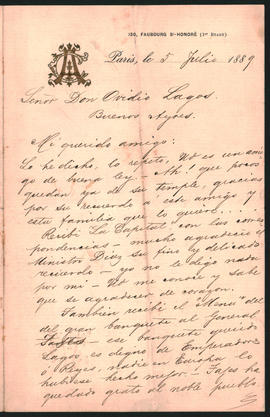 130, FAUBOURG St-HONORÉ
Paris, le 5 Julio 1889
Señor Don Ovidio Lagos.
Buenos Ayres.
Mi querido amigo:
Lo he dicho, lo repito, Vd. es un ami
go de buena ley. — Ah! que pocos
quedan ya de su temple, gracias
por su recuerdo a este amigo y
esta familia que lo quiere...
Recibí "La Capital", con las corres
pondencias — mucho agradeció el
Ministro Diaz su fino y delicado
recuerdo — yo no le digo nada
por mi — Vd. me conoce y sabe
que se agradecer de corazon.
Tambien recibí el "Menu" del
del gran banquete al General
ese banquete querido
Lagos, es digno de Emperadores
ó Reyes, nadie en Europa lo
hubiese hecho mejor — Tajes ha
quedado grato al noble pueblo